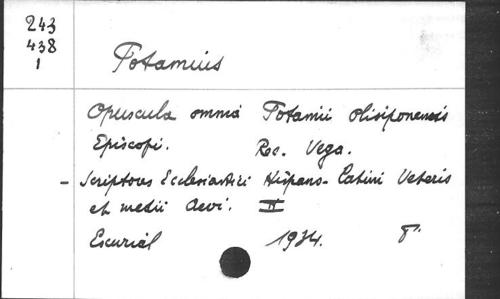 243
438
1
Potamius
Opuscula omnia Potamii olisiponensis
Episcopi. Rec. Vega.
- Scriptores Ecclesiastici Hispano-Latini Veteris
et medii Aevi. II
Escurial 1934. 8°.